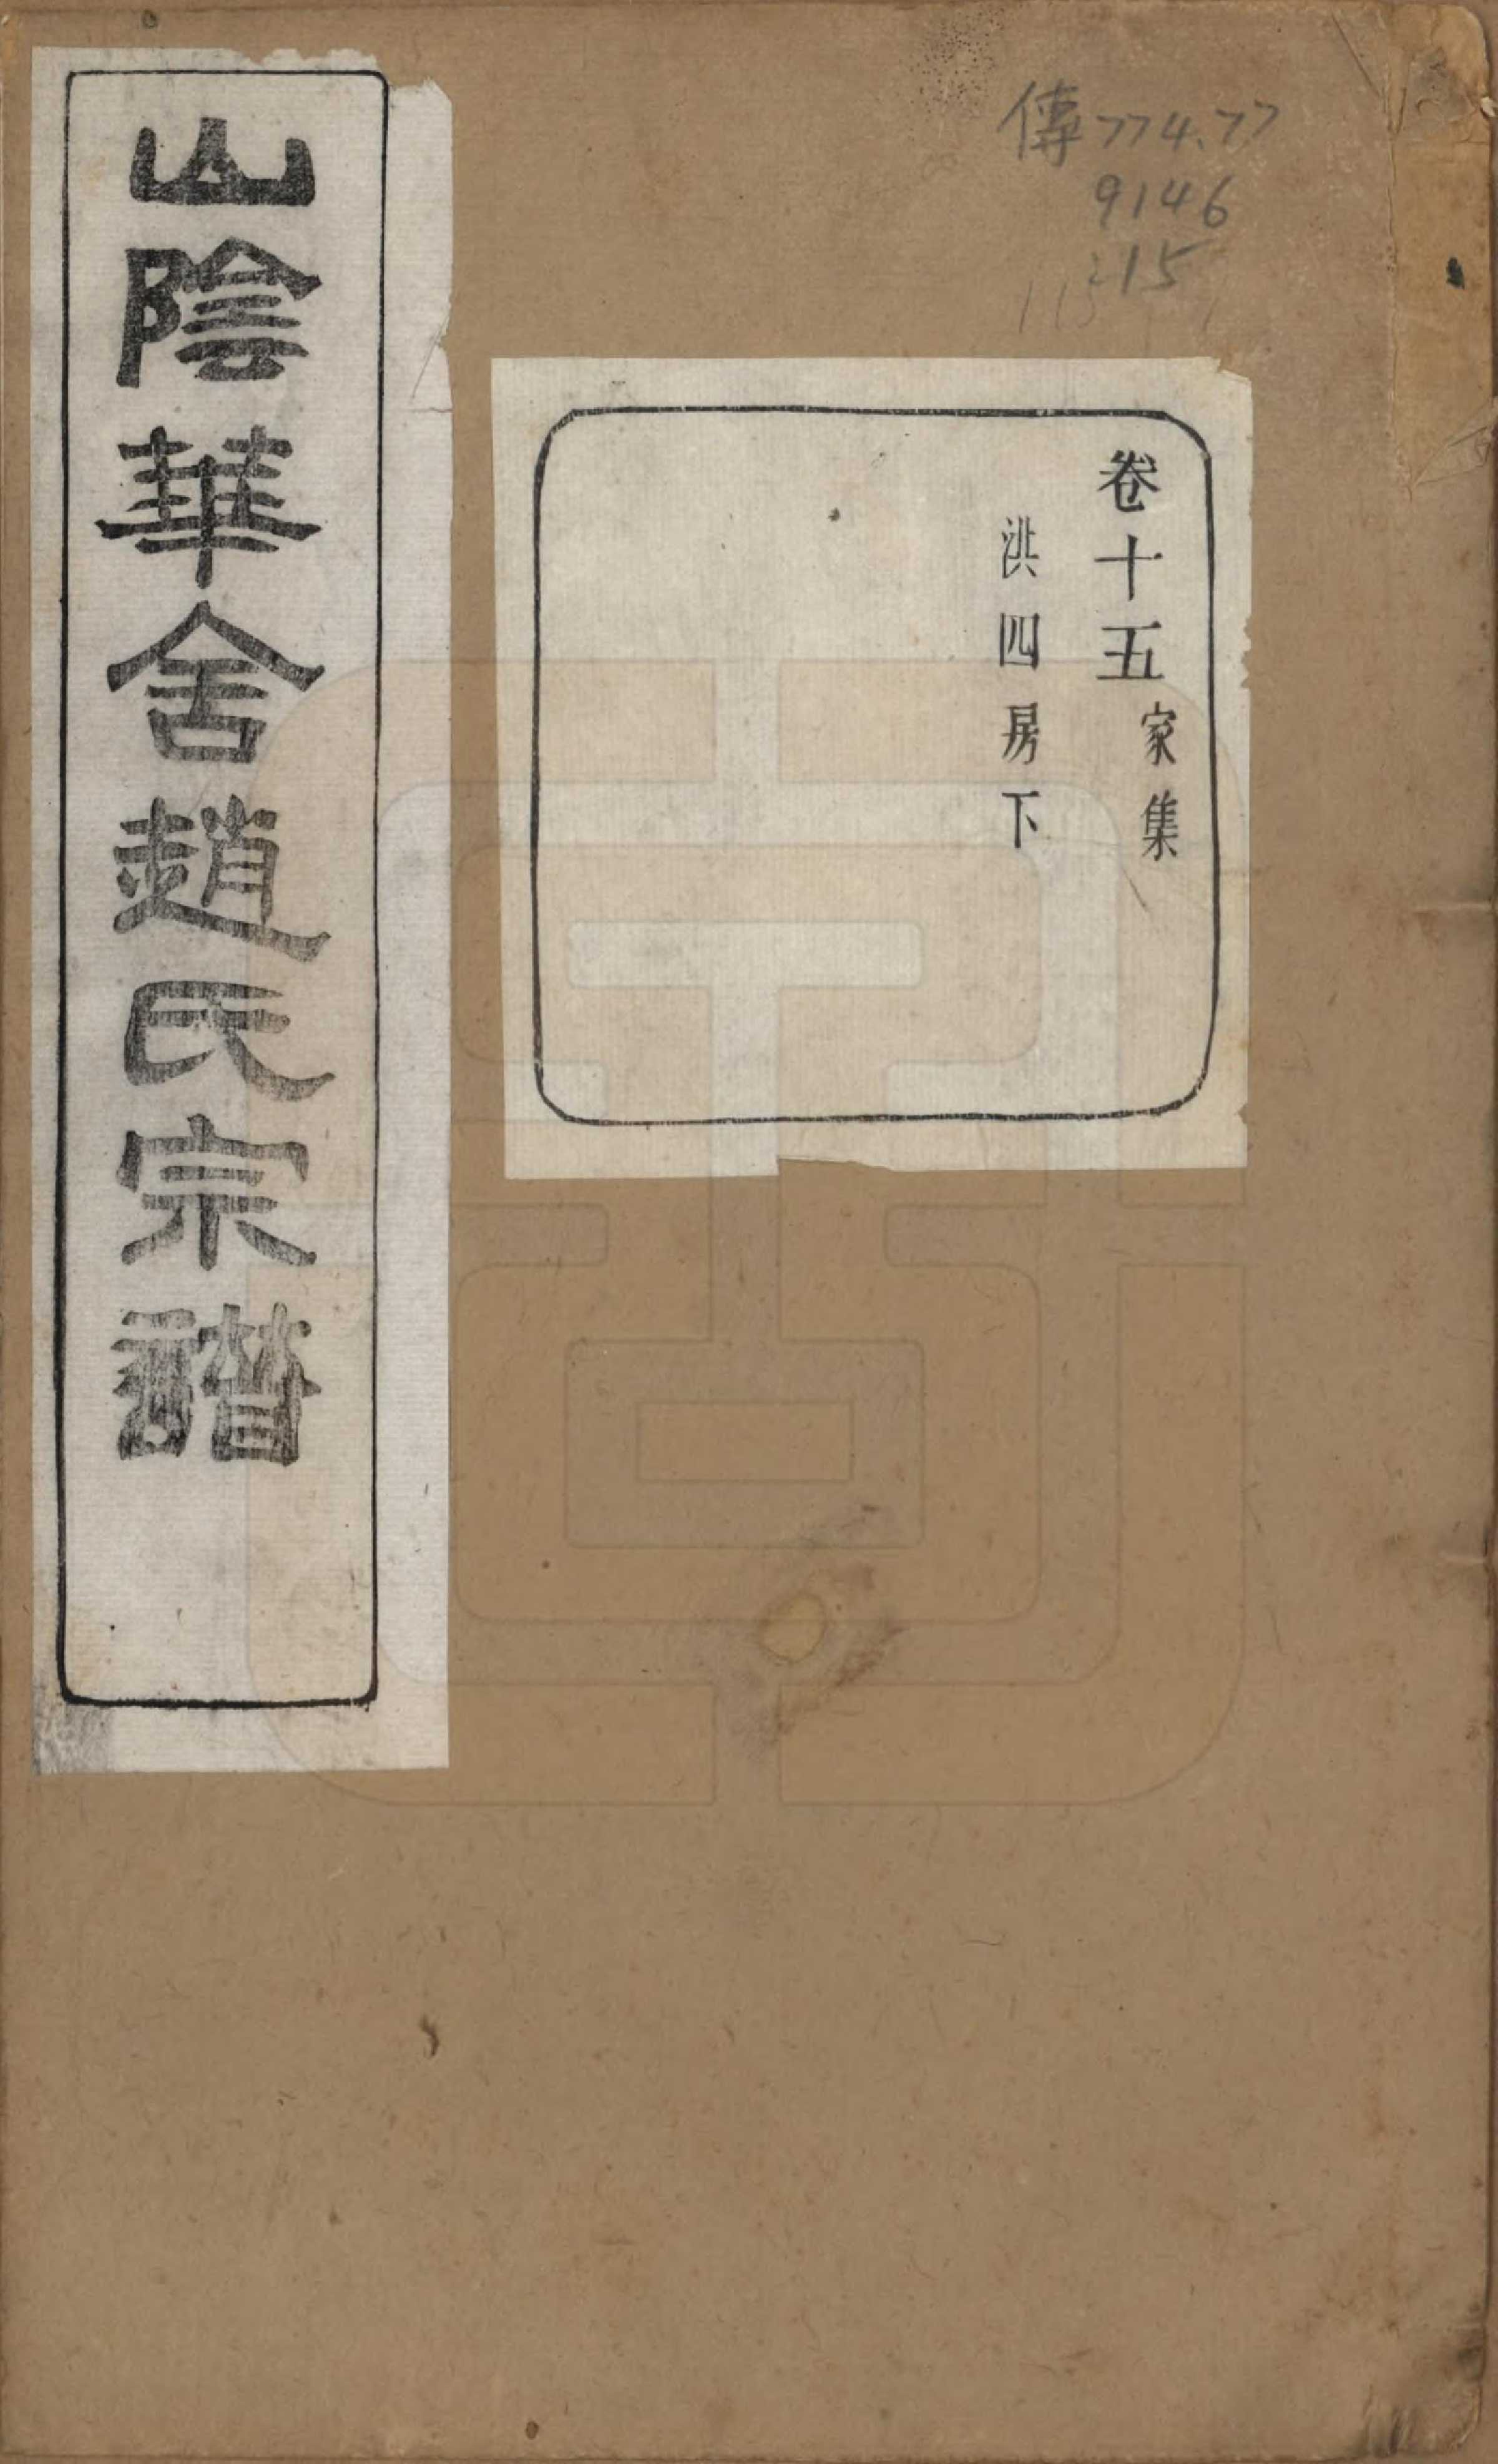 傳774.77
9146
:15
卷十五家集
洪四房下
山陰華舍趙氏宗譜